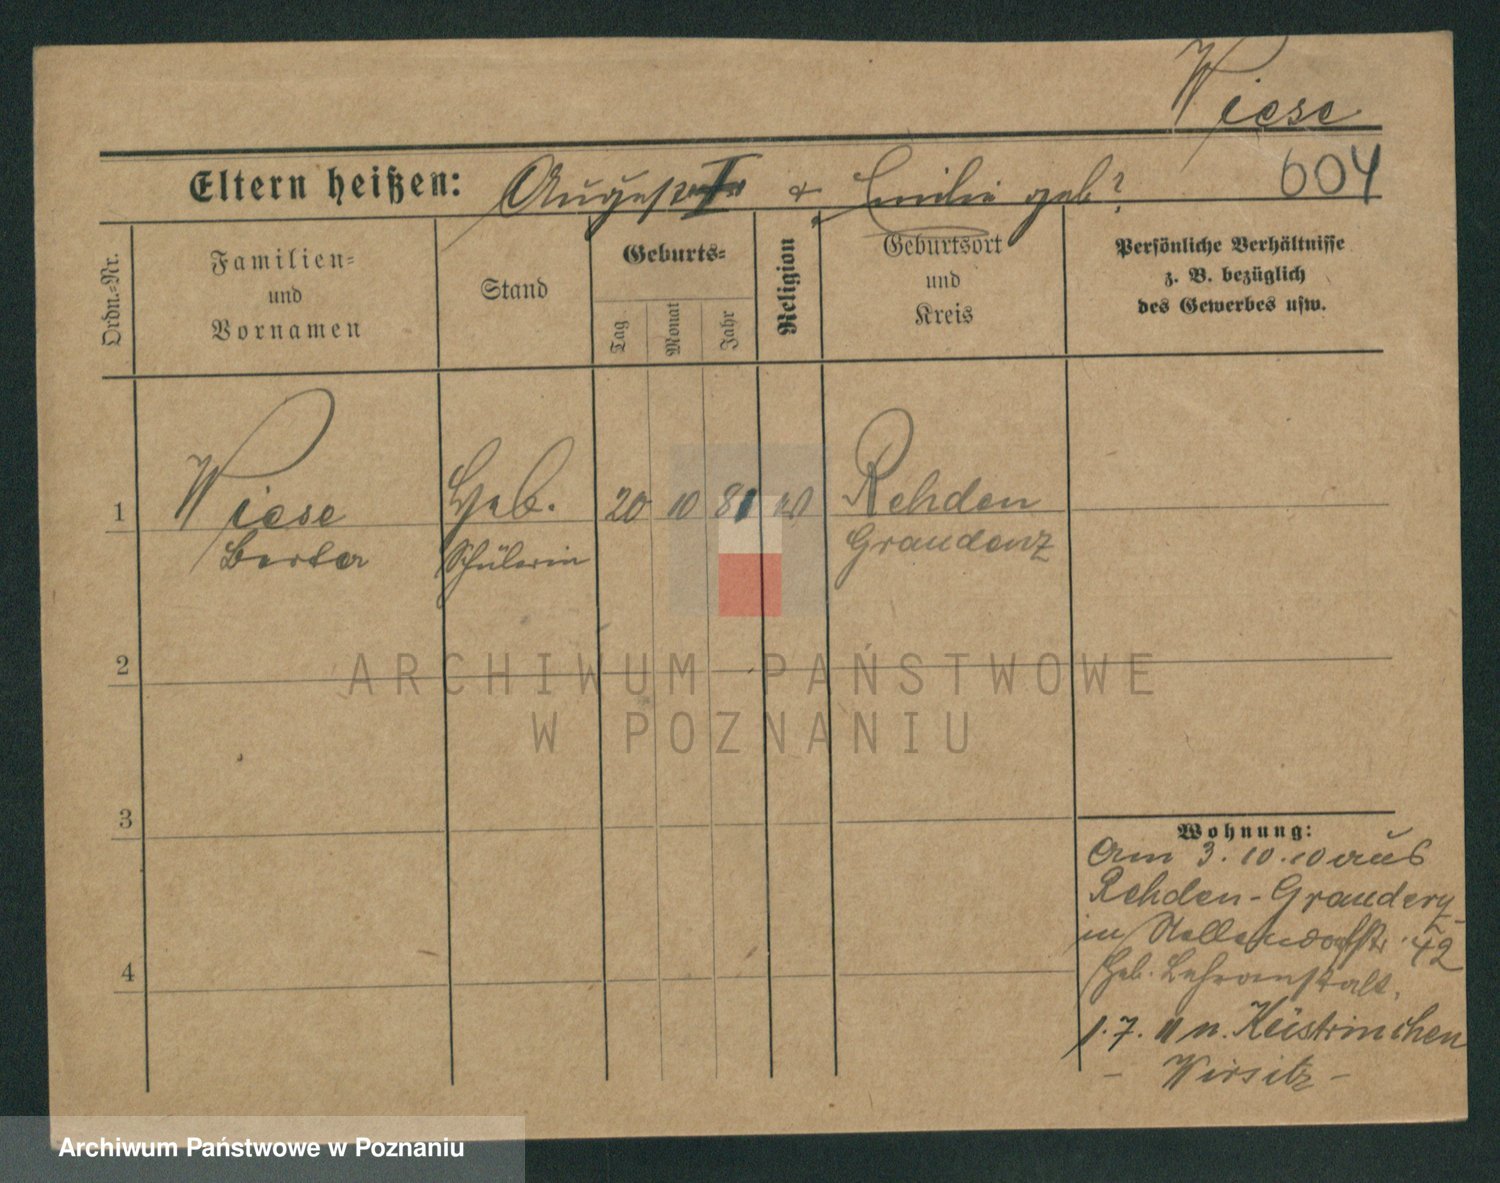 Wiese
604
Eltern heißen: August & Emilie geb?
Ordn.-Nr.
Familien-
und
Vornamen
Stand
Geburts-
Tag
Monat
Jahr
Religion
Geburtsort
und
Kreis
Persönliche Verhältnisse
z. B. bezüglich
des Gewerbes usw.
1 Wiese Heb. 20 10 81 Rehden
Berta Schülerin Graudenz
2
3
4
Wohnung:
Am 3.10.10 aus
Rehden-Graudenz
in Nollendorfstr. 42
Heb. Lehranstalt.
1.7. 11 n. Küstrinchen
- Wirsitz -
ARCHIWUM PAŃSTWOWE
W POZNANIU
Archiwum Państwowe w Poznaniu